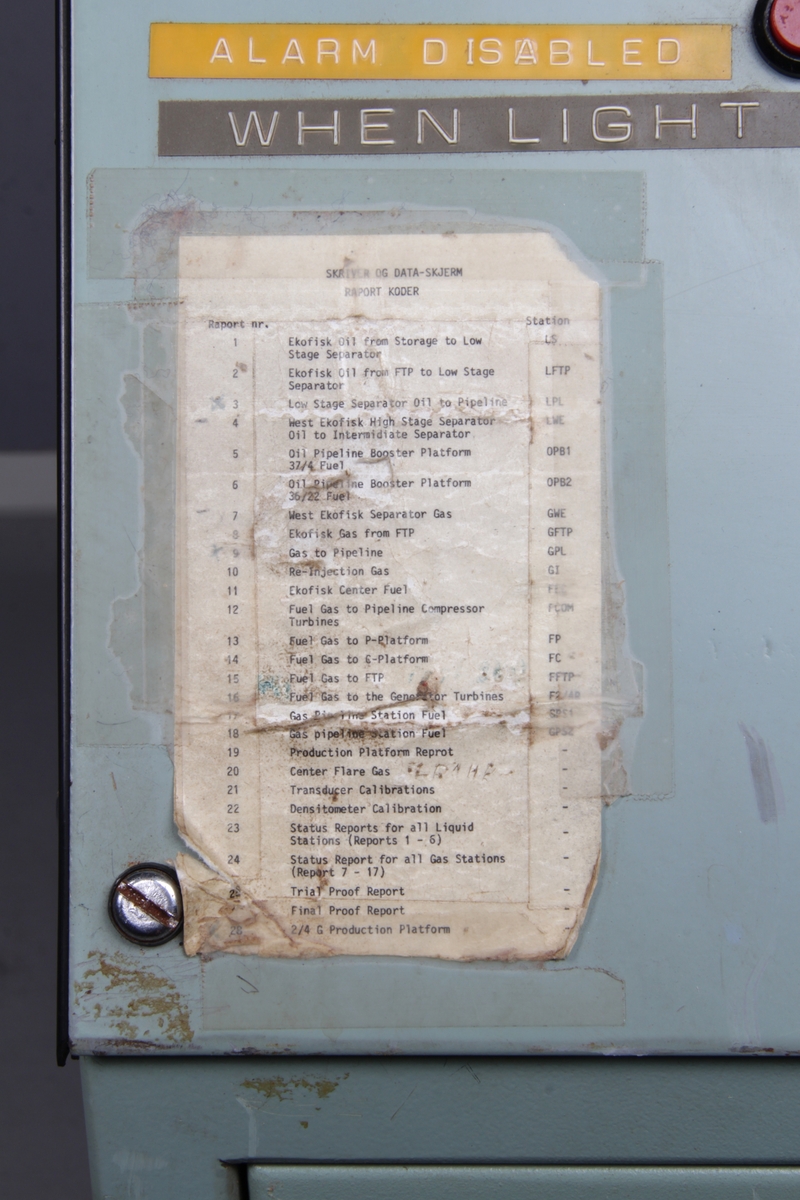 ALARM DISABLED
WHEN LIGHT
SKRIVER OG DATA-SKJERM
RAPORT KODER
Raport nr. Station
1 Ekofisk Oil from Storage to Low LS
Stage Separator
2 Ekofisk Oil from FTP to Low Stage LFTP
Separator
3 Low Stage Separator Oil to Pipeline LPL
4 West Ekofisk High Stage Separator LWE
Oil to Intermidiate Separator
5 Oil Pipeline Booster Platform OPB1
37/4 Fuel
6 Oil Pipeline Booster Platform OPB2
36/22 Fuel
7 West Ekofisk Separator Gas GWE
8 Ekofisk Gas from FTP GFTP
9 Gas to Pipeline GPL
10 Re-Injection Gas GI
11 Ekofisk Center Fuel
12 Fuel Gas to Pipeline Compressor FCOM
Turbines
13 Fuel Gas to P-Platform FP
14 Fuel Gas to C-Platform FC
15 Fuel Gas to FTP FFTP
16 Fuel Gas to the Generator Turbines
17 Gas Pipeline Station Fuel
18 Gas pipeline Station Fuel
19 Production Platform Reprot -
20 Center Flare Gas -
21 Transducer Calibrations -
22 Densitometer Calibration -
23 Status Reports for all Liquid -
Stations (Reports 1 - 6)
24 Status Report for all Gas Stations -
(Report 7 - 17)
Trial Proof Report -
Final Proof Report -
2/4 G Production Platform -